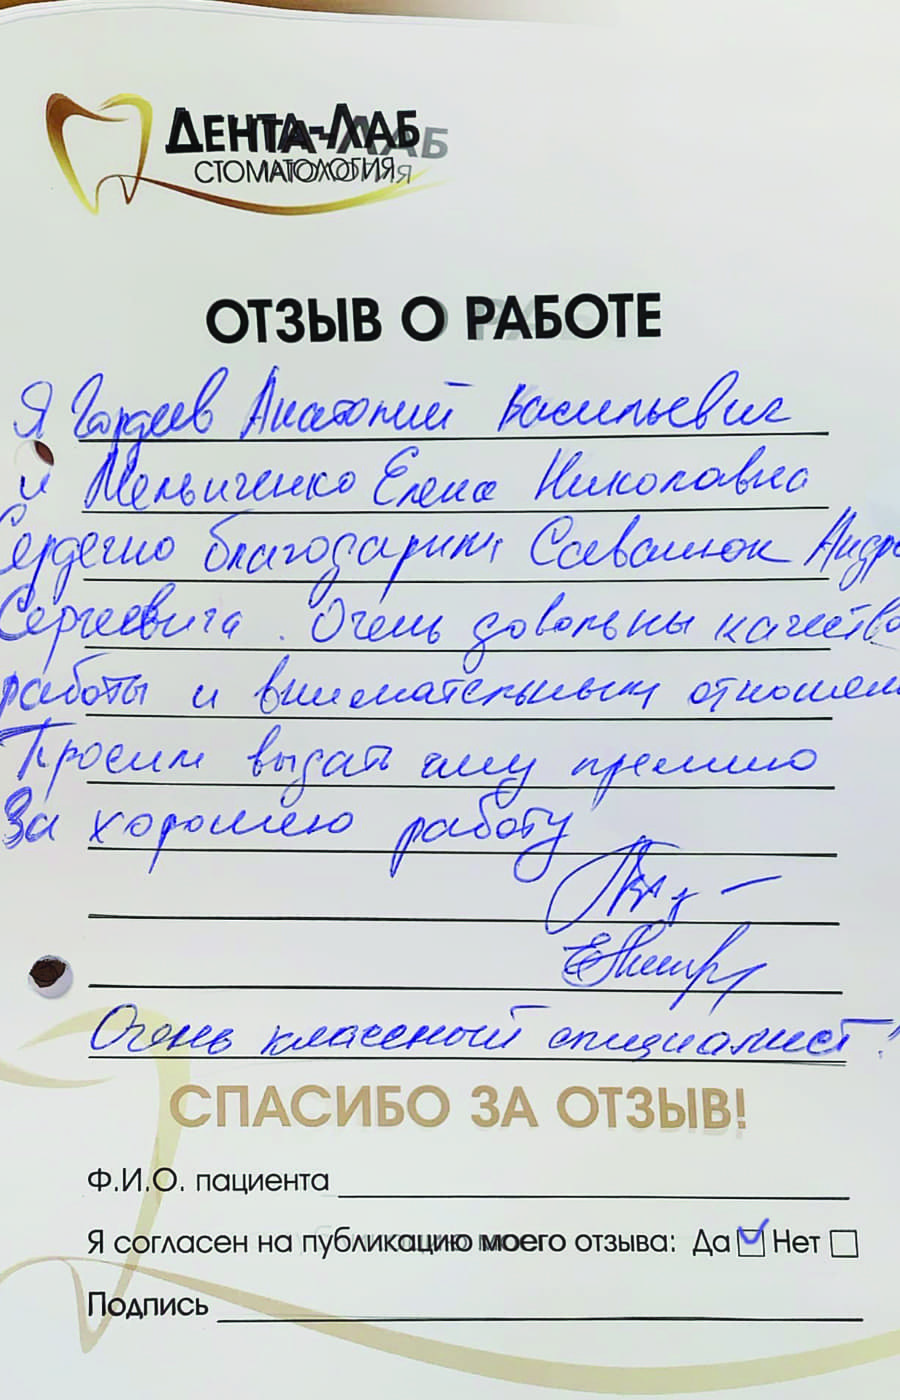 ДЕНТА-ЛАБ
СТОМАТОЛОГИЯ
ОТЗЫВ О РАБОТЕ
Я Гордеев Анатолий Васильевич
и Мельниченко Елена Николавна
Сердечно благодарим Саванюк Андре
Сергеевича. Очень довольны качество
работы и внимательным отношен
Просим выдать ему премию
За хорошую работу
Очень классный специалист!
СПАСИБО ЗА ОТЗЫВ!
Ф.И.О. пациента
Я согласен на публикацию моего отзыва: Да Нет
Подпись